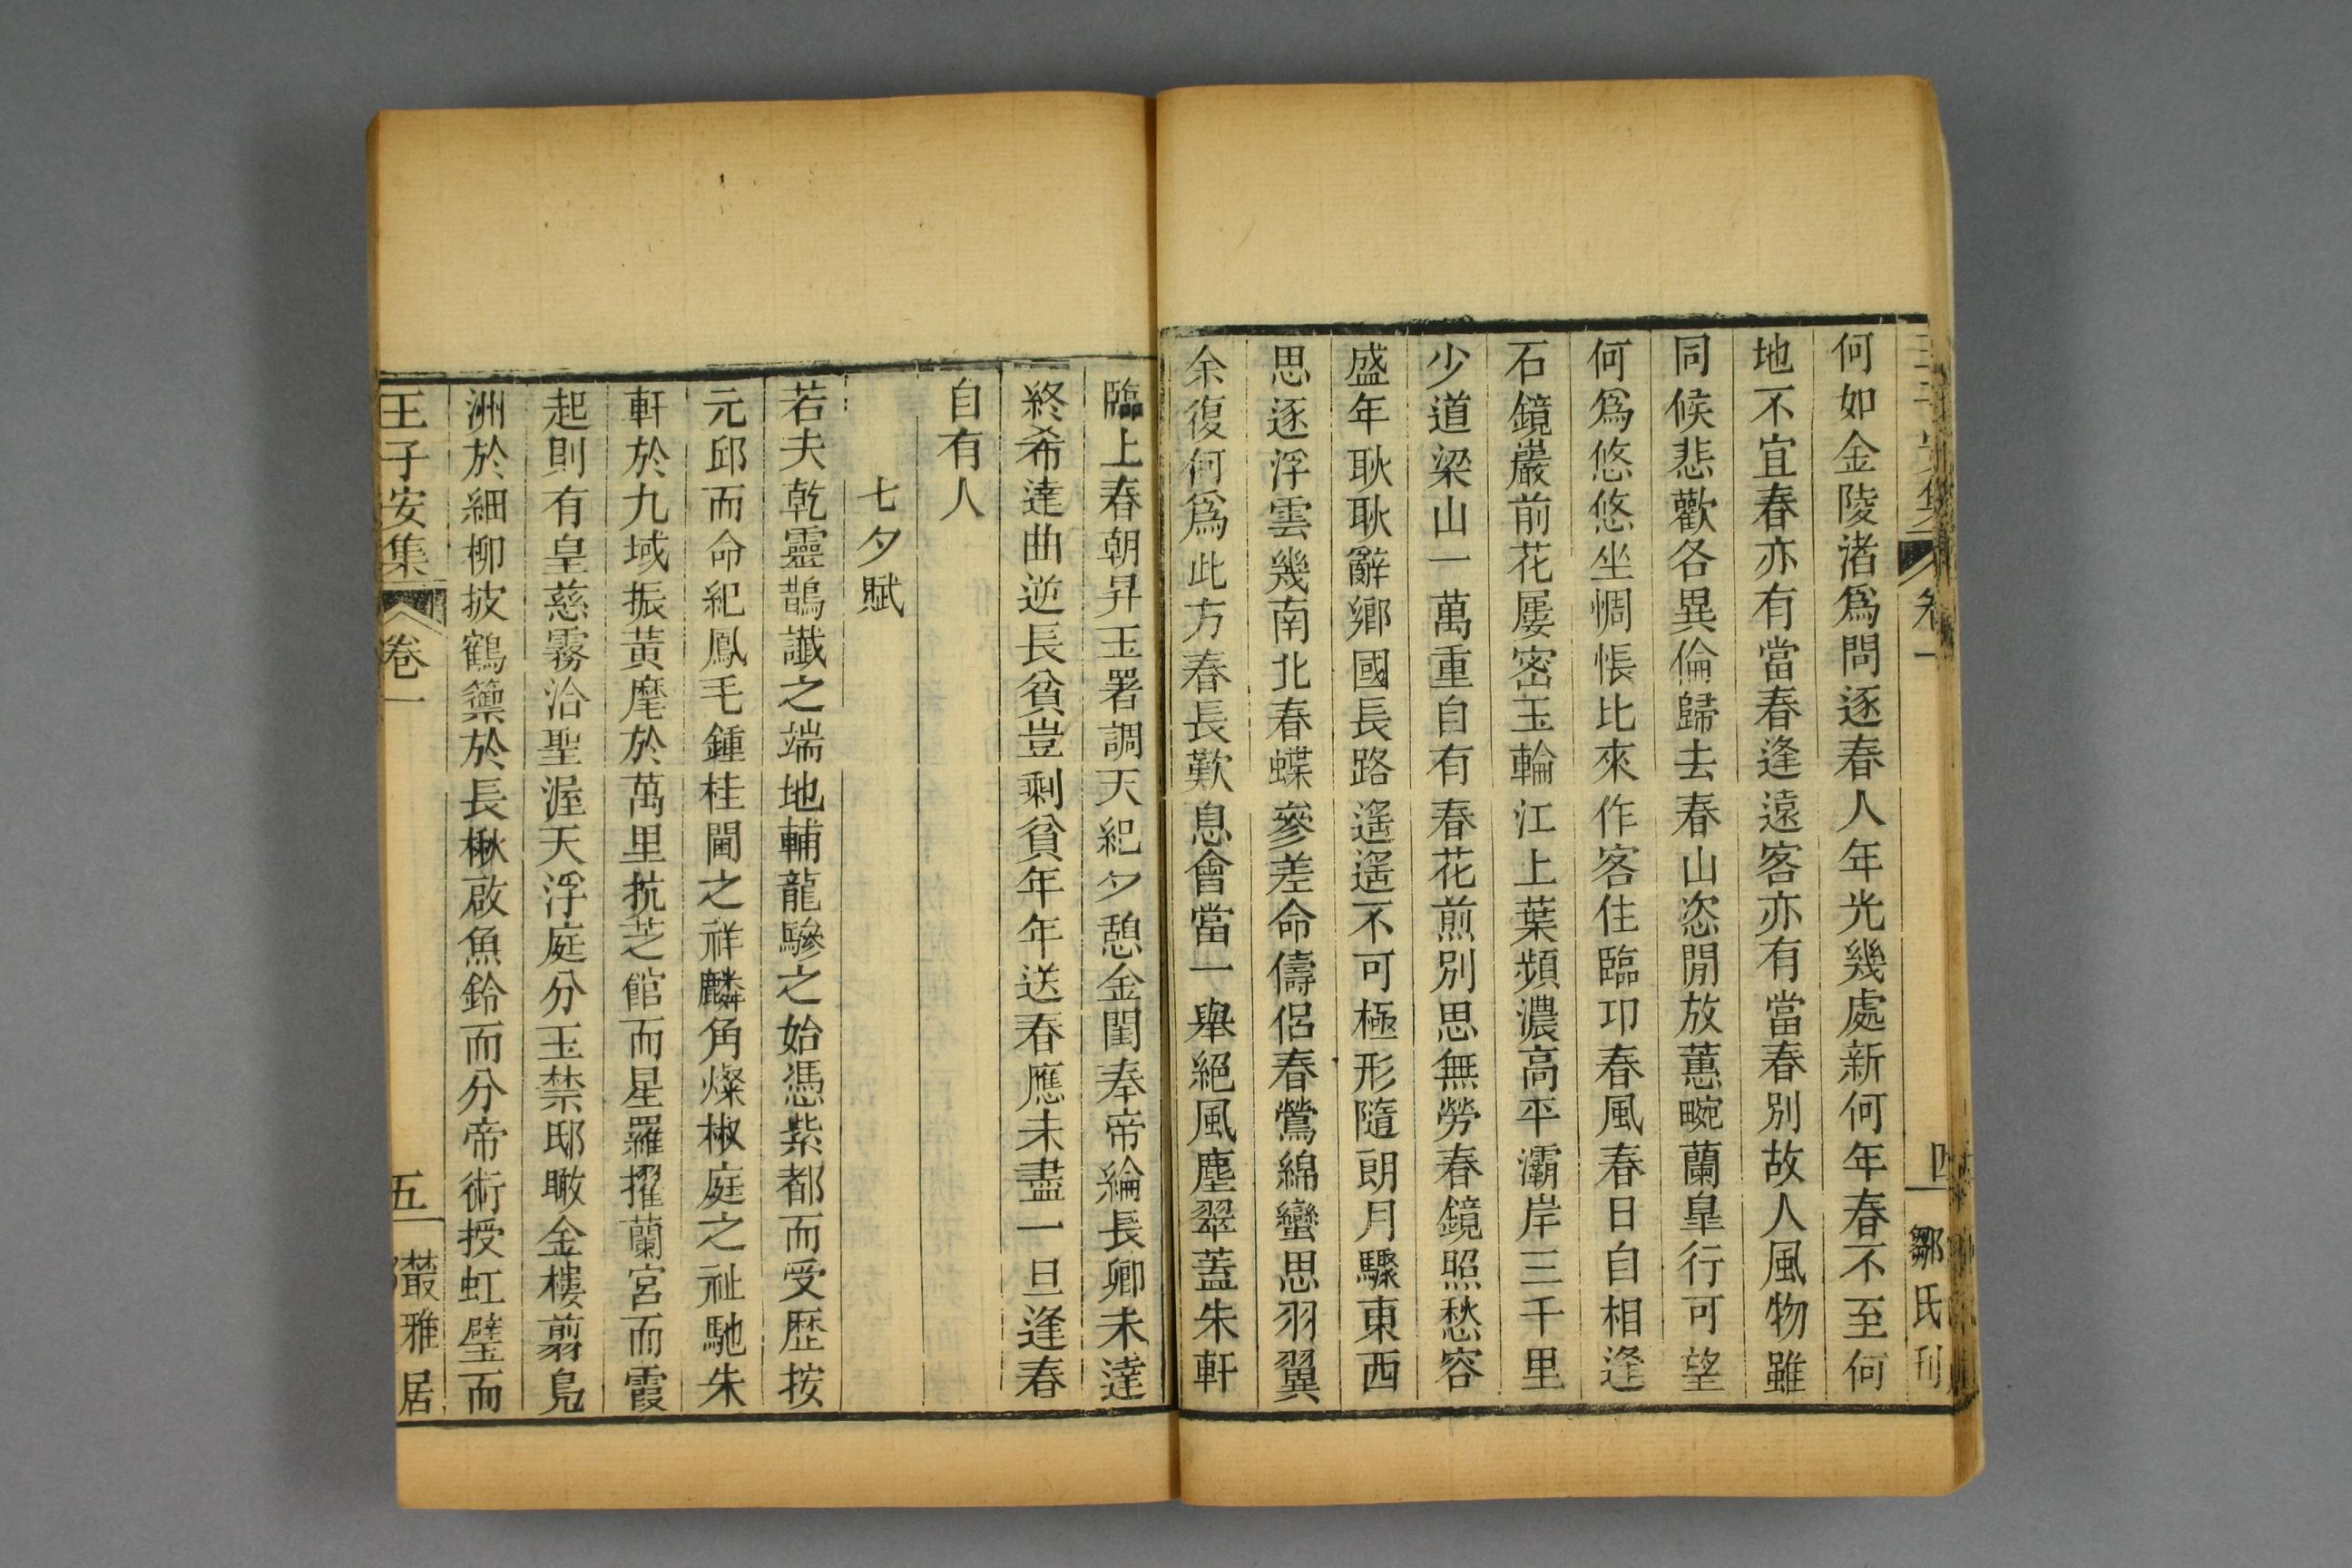 王子安集 卷一 四 鄒氏刊
何如金陵渚爲問逐春人年光幾處新何年春不至何
地不宜春亦有當春逢遠客亦有當春別故人風物雖
同候悲歡各異倫歸去春山恣閒放蕙畹蘭皐行可望
何爲悠悠坐惆悵比來作客住臨卭春風春日自相逢
石鏡巖前花屢密玉輪江上葉頻濃高平灞岸三千里
少道梁山一萬重自有春花煎別思無勞春鏡照愁容
盛年耿耿辭鄉國長路遙遙不可極形隨朗月驟東西
思逐浮雲幾南北春蝶參差命儔侶春鶯綿蠻思羽翼
余復何爲此方春長歎息會當一舉絕風塵翠蓋朱軒
臨上春朝昇玉署調天紀夕憩金閨奉帝綸長卿未達
終希達曲逆長貧豈剩貧年年送春應未盡一旦逢春
自有人
七夕賦
若夫乾靈鵲讖之端地輔龍驂之始憑紫都而受歷按
元邱而命紀鳳毛鍾桂閫之祥麟角燦椒庭之祉馳朱
軒於九域振黃麾於萬里抗芝館而星羅擢蘭宮而霞
起則有皇慈霧洽聖渥天浮庭分玉禁邸瞰金樓翦鳧
洲於細柳披鶴籞於長楸啟魚鈐而分帝術授虹璧而
王子安集 卷一 五 叢雅居